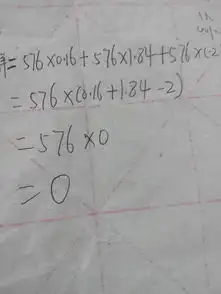 =576×0.16+576×1.84+576×(-2
=576×(0.16+1.84-2)
=576×0
=0